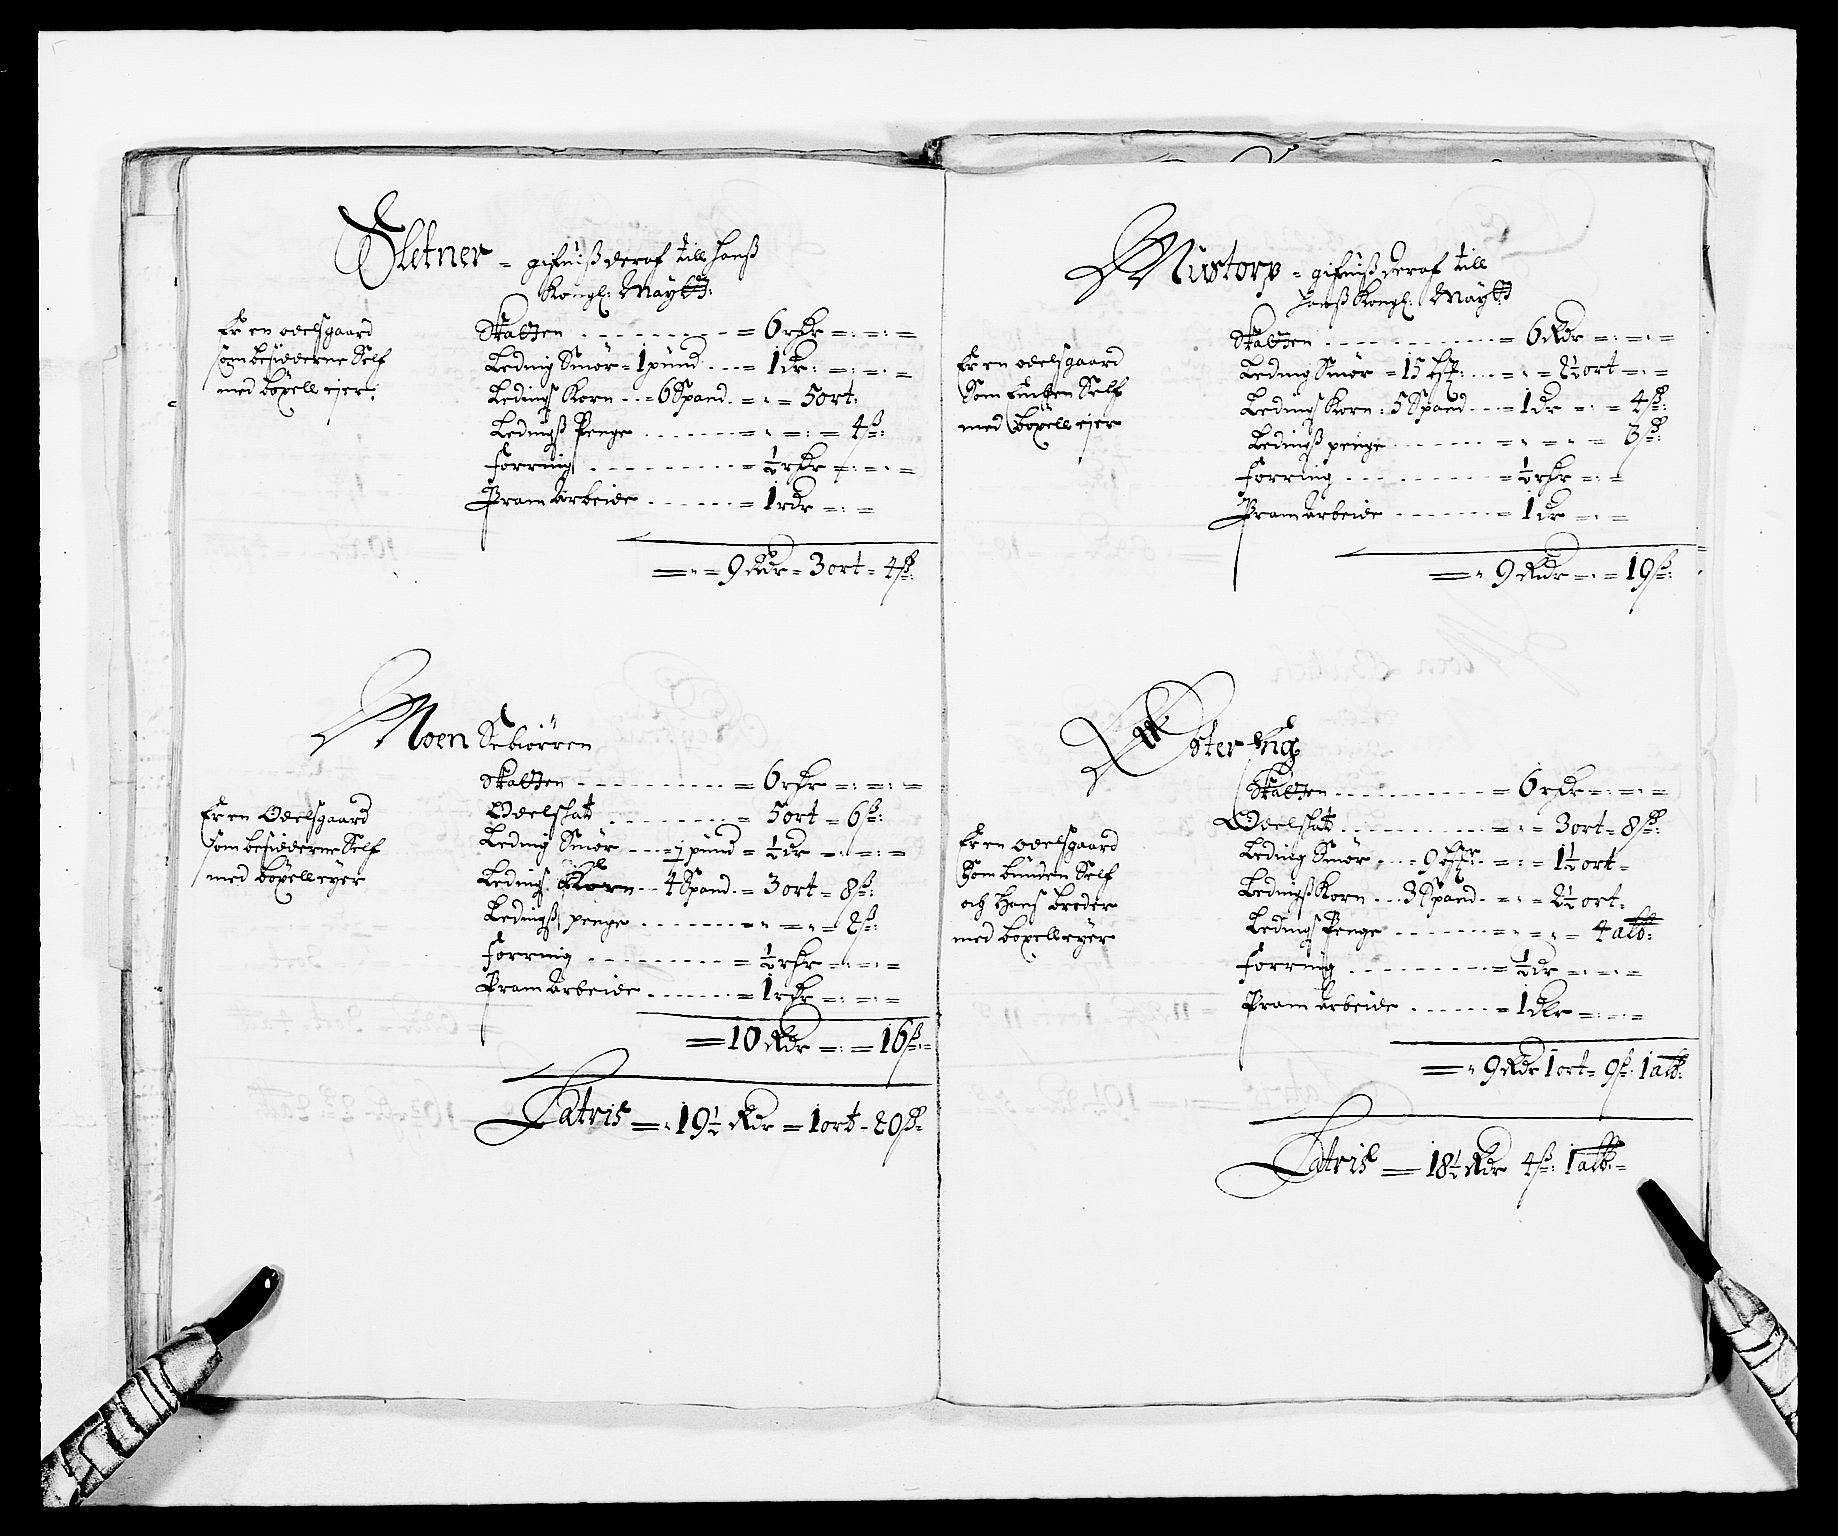 Sletner = gifuiß deraf till Hanß
Kongl: Maÿtt:
Er en odelsgaard
som besidderne Self
med böxell ejer:
Skatten - - - = 6 rdr =:=:=
Leding Smör = 1 pund - - = 1 dr: =:=:=
Ledings Korn - - = 6 Spand = " = 5 ort:
Ledingß Penge - - - = " = : = 4 ß:
Forring - - - = ½ rdr =:=:=
Pram Arbeide - - - = 1 rdr =:=
= " = 9 Rdr = 3 ort = 4 ß:
Moen Sebiörren
Er en Odelsgaard
som besidderne Self
med böxell eÿer
Skatten - - - = 6 rdr =:=:=
Odelskat - - - = 5 ort = 6 ß:
Leding Smör - - - ½ pund = ½ dr =:=:=
Ledings Korn - - 4 Spand = 3 ort = 8 ß:
Ledingß penge - - - = " = " = 2 ß:
Forring - - - = ½ rdr =:=:=
Pram Arbeide - - - = 1 rdr =:=:=
= 10 Rdr =:= 16 ß:=
Latris = " 19½ Rdr = 1 ort = 20 ß=
Mustorp = gifuiß deraf till
Hanß Kongl: Maÿtt
Er en odelsgaard
Som Enken Self
med böxell ejer
Skatten - - - = 6 Rdr =:=:=
Leding Smör = 15 - - = " = 2½ ort =:=
Ledings Korn: 5 Spand - - = 1 dr =:= 4 ß:
Ledingß penge - - - = " = " = 3 ß:
Forring - - - = ½ rdr =:=
Pram arbeide - - - = 1 dr =:=
= " 9 Rdr =:= 19 ß:
Öster Eng
Er en odelsgaard
Som bunden Self
och Hans Broder
med böxell eÿer
Skatten - - - = 6 rdr =:=:=
Odelskat - - - = : = 3 ort = 8 ß:
Leding Smör - - - 9 - - = : = 1½ ort =
Ledingß Korn - - - 3 Spand - = : = 2½ ort =
Ledings Penge - - - = " = " = 4 alb:
Forring - - - = ½ dr =:=:=
Pram Arbeide - - - = 1 dr =:=:=
= " 9 Rdr 1 ort = 9 ß: 1 alb:
Latris = 18½ Rdr 4 ß: 1 alb:=